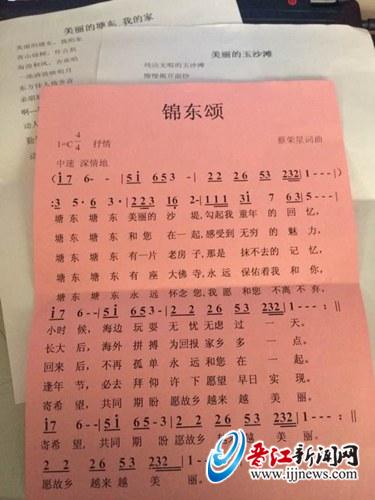 美丽的塘东 我的家
美丽的玉沙滩
锦东颂
1=C 4/4 抒情
蔡荣星词曲
中速 深情地
(i7 6- - | 5i 653 - | 2 2 26 53 232 | 1 - - -) |
:3 5·6 3· | 223 16· 2 - | i7 6 - - | 5i 653 - |
塘东 塘东 美丽的 沙 堤,勾起我 童年 的 回 忆,
塘东 塘东 和您 在 一起,感受到 无穷 的 魅 力,
塘东 塘东 有一片 老房 子,那是 抹不去 的 记 忆,
塘东 塘东 有座 大佛 寺,永远 保佑着 我 和 你,
塘东 塘东 永远 怀念 您,我愿 和您 不离 不 弃,
i7 6 - - | 5i 653 - | 2 2 26 53 232 | 1 - - - :||
小时 候, 海边 玩耍 无 忧 无虑 过 一 天。
长大 后, 海外 拼搏 为 回报 家乡 多 一 点。
回来 后, 不再 孤单 永远 和您 在 一 起。
逢年 节, 必去 拜仰 许下 愿望 早日 实 现。
寄希 望, 共同 期盼 愿故乡 越来 越 美 丽。
i7 6 - - | 5i 653 - | 2 2 26 53 232 | 1 - - - |
寄希 望, 共同 期 盼 愿故乡 越来 越 美 丽。
2 2 26 53 232 | 1 - - - :||
愿故乡 越来 越 美 丽。
晋江新闻网
www.ijjnews.com